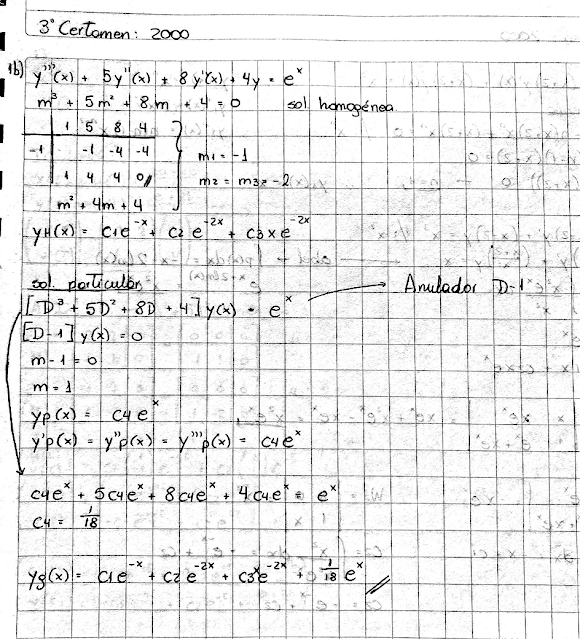 3° Certamen: 2000
1b) y'''(x) + 5y''(x) + 8y'(x) + 4y = e^x
m³ + 5m² + 8m + 4 = 0 sol homogénea
1 5 8 4
-1 -1 -4 -4 m1 = -1
1 4 4 0 m2 = m3 = -2
m² + 4m + 4
yH(x) = c1e^-x + c2 e^-2x + c3xe^-2x
sol. particular
[D³ + 5D² + 8D + 4] y(x) = e^x Anulador D-1
[D-1] y(x) = 0
m-1 = 0
m = 1
yp(x) = c4e^x
y'p(x) = y''p(x) = y'''p(x) = c4e^x
c4e^x + 5c4e^x + 8c4e^x + 4c4e^x = e^x
c4 = 1/18
yg(x) = c1e^-x + c2e^-2x + c3^xe^-2x + 1/18 e^x